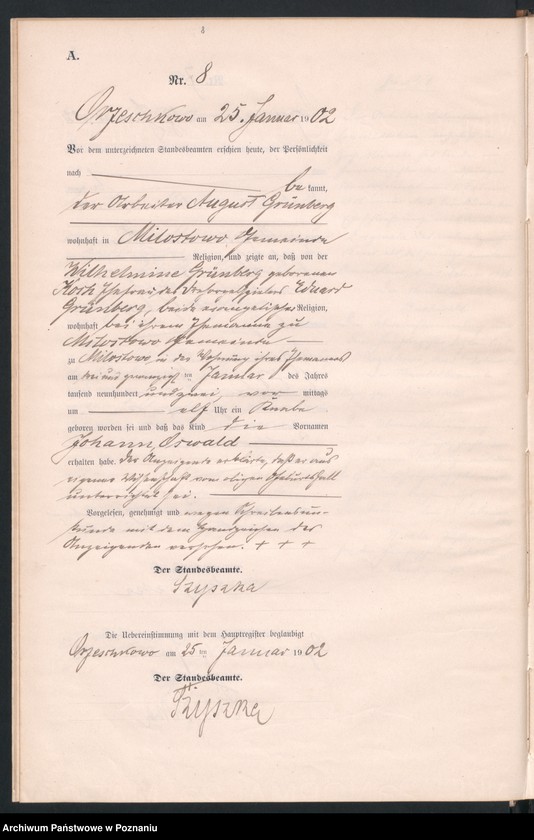 8
A.
Nr. 8
Orzeschkowo am 25. Januar 1902
Vor dem unterzeichneten Standesbeamten erschien heute, der Persönlichkeit
nach be kannt,
der Arbeiter August Grünberg
wohnhaft in Milostowo, Gemeinde
Religion, und zeigte an, daß von der
Wilhelmine Grünberg geborenen
Kork Ehefrau des Eduard
Grünberg, beide evangelischer Religion,
wohnhaft bei ihrem Ehemanne zu
Milostowo Gemeinde
zu Milostowo, in der Wohnung ihres Ehemannes
am drei und zwanzigsten Januar des Jahres
tausend neunhundert und zwei, vor mittags
um elf Uhr ein Knabe
geboren worden sei und daß das Kind die Vornamen
Johann, Oswald
erhalten habe. Der Anzeigende erklärte, daß er aus
eigener Wissenschaft vom obigen Geburtsfall
unterrichtet sei.
Vorgelesen, genehmigt und wegen Schreibensun-
kunde mit dem Handzeichen des
Anzeigenden versehen. + + +
Der Standesbeamte.
Szyszka
Die Uebereinstimmung mit dem Hauptregister beglaubigt
Orzeschkowo am 25 ten Januar 1902
Der Standesbeamte.
Szyszka
Archiwum Państwowe w Poznaniu